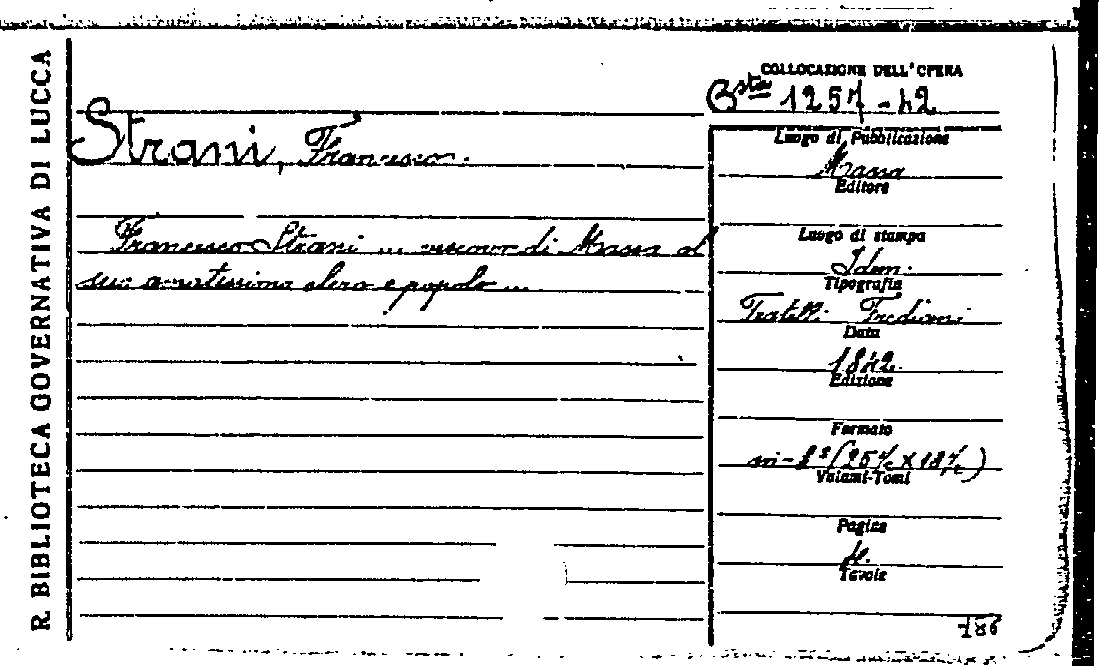 R. BIBLIOTECA GOVERNATIVA DI LUCCA
COLLOCAZIONE DELL'OPERA
Bsta 1257-42
Strani, Francesco.
Francesco Strani ... vescovo di Massa al
suo amatissimo clero e popolo ...
Luogo di Pubblicazione
Massa
Editore
Luogo di stampa
Idem.
Tipografia
Fratelli Frediani
Data
1842.
Edizione
Formato
in-8º (25% x 18%)
Volumi-Tomi
Pagine
4.
Tavole
186